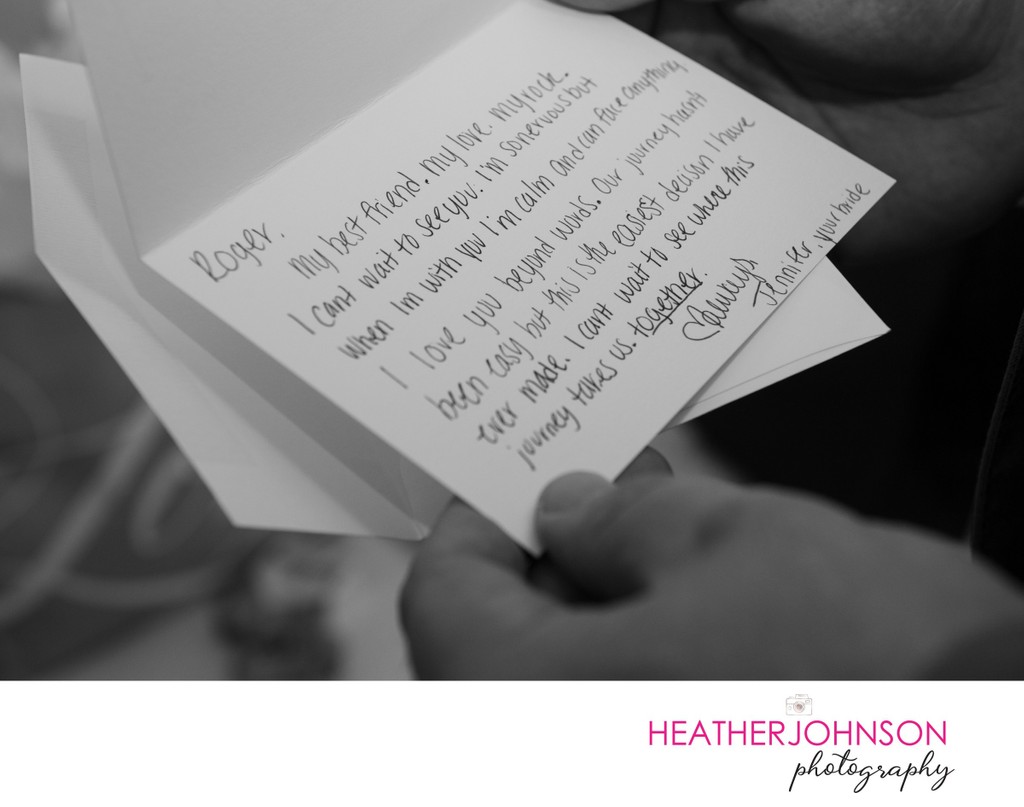 Roger.
My best friend. My love. My rock.
I cant wait to see you. I'm so nervous but
when Im with you I'm calm and can face anything
I love you beyond words. Our journey hasnt
been easy but this is the easiest decision I have
ever made. I cant wait to see where this
journey takes us. together.
Always
Jennifer, your bride
HEATHERJOHNSON
photography